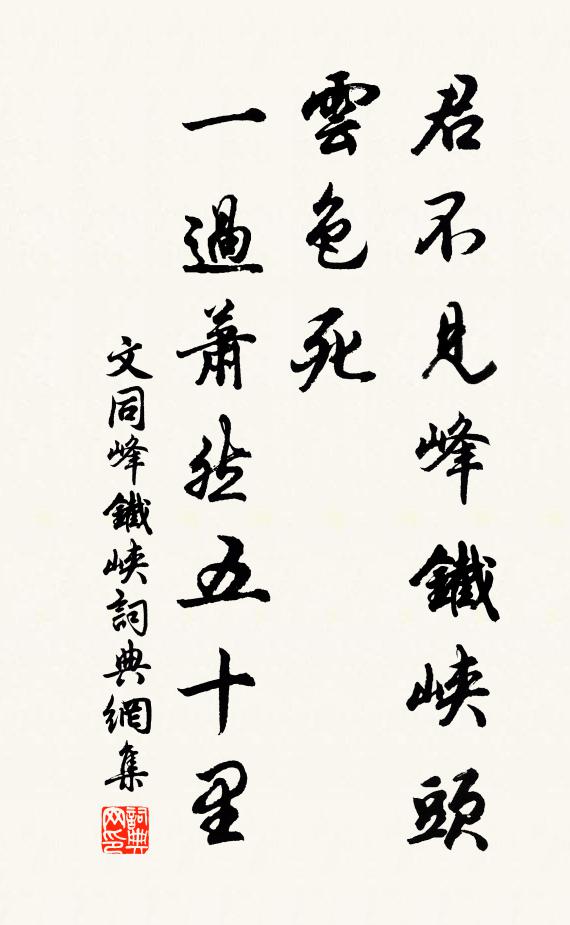 君不見峰鐵峽頭
雲色死
一過蕭然五十里
文同峰鐵峽詞典網集
詞典网印